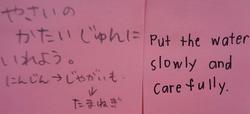 やさいの
かたいじゅんに
いれよう。
にんじん→じゃがいも
→たまねぎ
Put the water
slowly and
carefully.